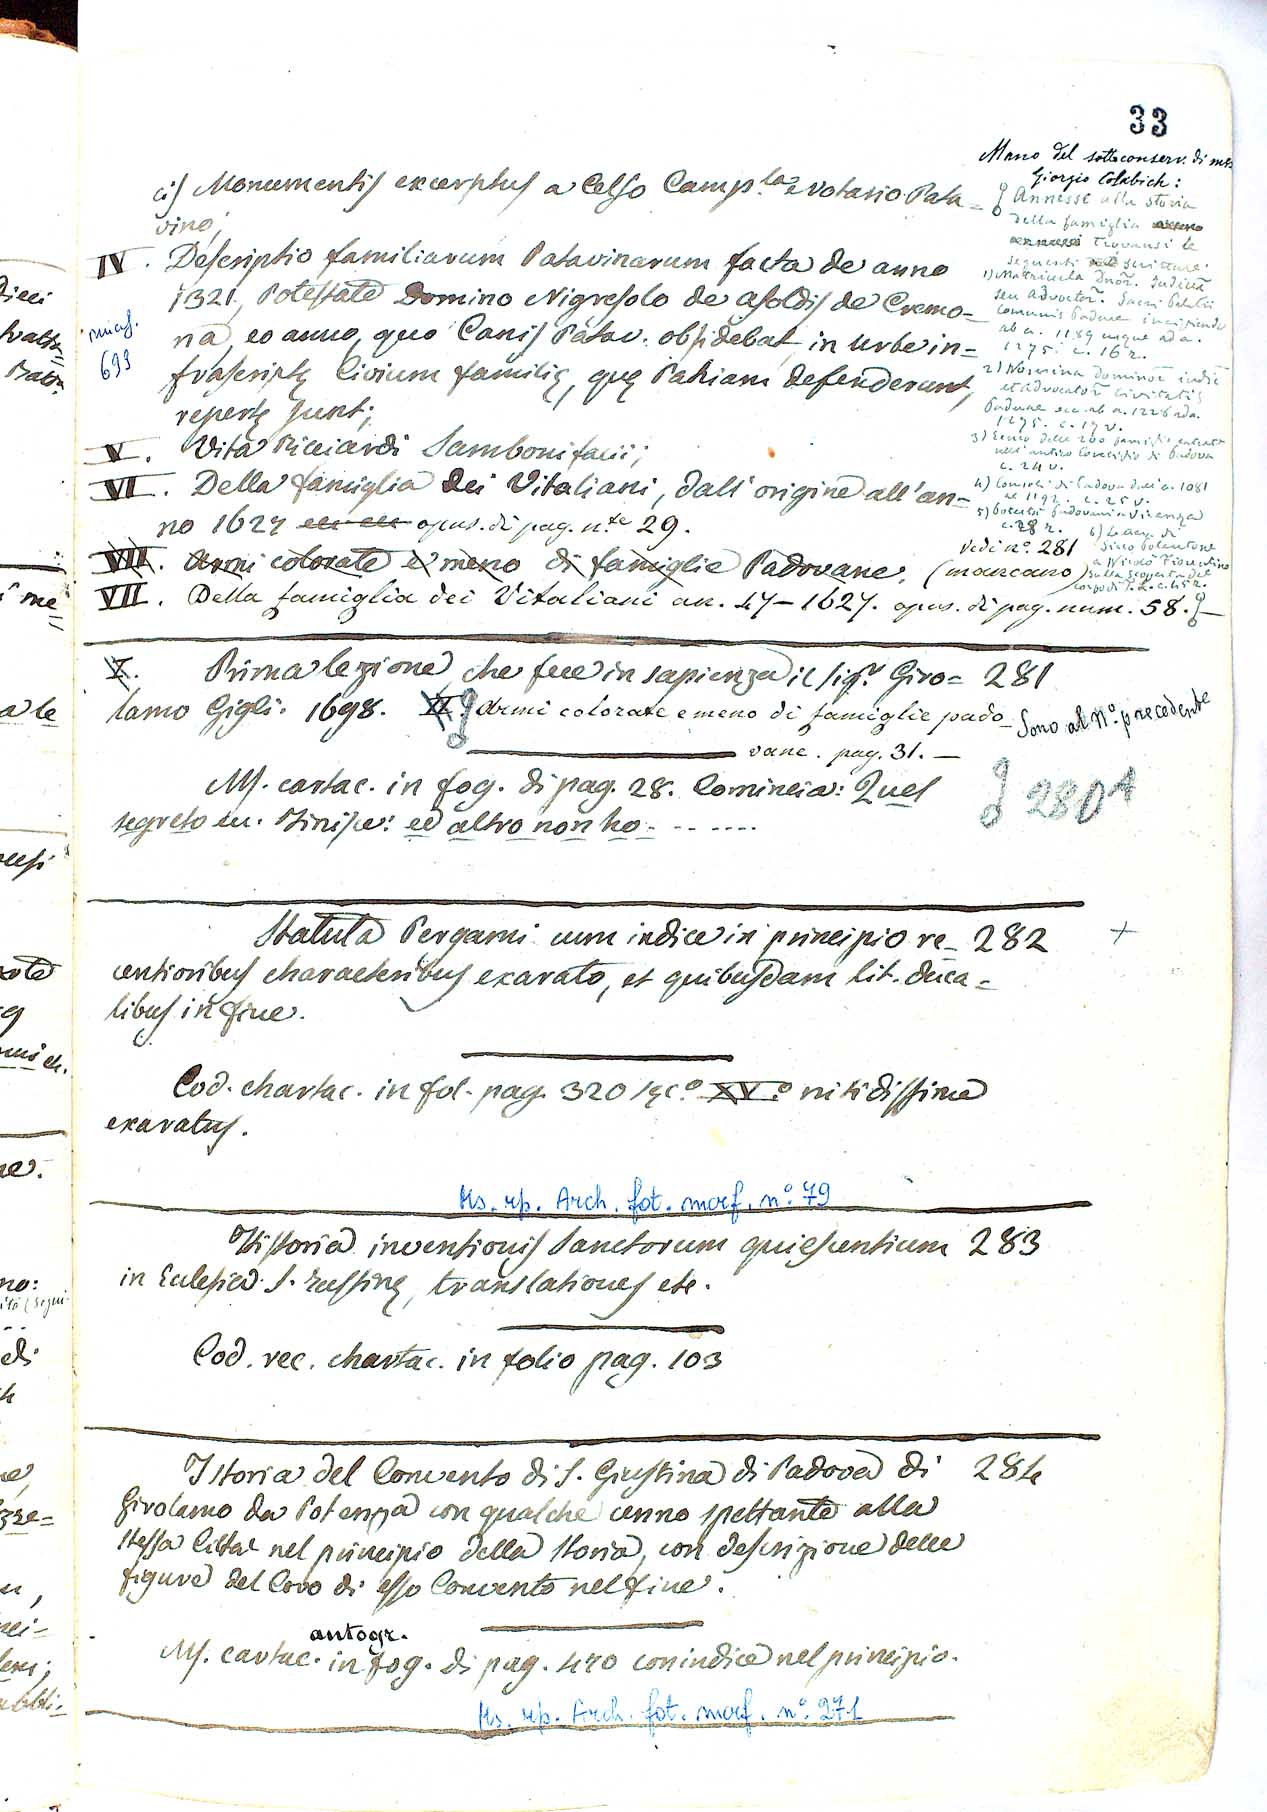 33
Mano del sottoconserv. di mss
Giorgio Colabich:
cis Monumentis excerptus a Celso Camp.la Notario Pata=
vino;
Annesse alla storia
della famiglia
trovansi le
seguenti scritture:
1) Matricula Dnõr. Judicũ
seu Advocator. Sacri Palatii
Comunis Padue incipiendo
ab a. 1189 usque ad a.
1275. c. 16 r.
2) Nomina Dominor iudic
et advocator civitatis
Paduae ecc. ab a. 1226 ad a.
1275. c. 19 v.
3) Elenco delle 200 famiglie entrate
nell'antico Consiglio di Padova
c. 24 v.
4) Consoli di Padova dall'a. 1081
al 1192. c. 25 v.
5) Podestà Padovani a Vicenza
c. 28 r.
6) di
Sico Polentone
a Nicolò Fiorentino
sulla scoperta del
corpo di T. L. c. 45 r.
IV. Descriptio familiarum Patavinarum facta de anno
1321, Potestate Domino Nigresolo de Asoldis de Cremo=
na eo anno, quo Canis Patav. obsidebat, in urbe in=
frascriptę Civium familię, quę Patriam defenderunt,
repertę sunt;
miscl.
693
V. Vita Ricciardi Sambonifacii;
VI. Della famiglia dei Vitaliani, dall'origine all'an=
no 1627 opus. di pag. n.te 29.
VIII. Armi colorate e meno di famiglie Padovane. (mancano)
vedi n.º 281
VII. Della famiglia dei Vitaliani an. 47-1627. opus. di pag. num. 58.
I. Prima lezione, che fece in sapienza il sig.r Giro= 281
lamo Gigli. 1698. II Armi colorate e meno di famiglie pado
vane. pag. 31.
Sono al N.º precedente
280A
Ms. cartac. in fog. di pag. 28. Comincia: Quel
segreto ec. Finisce: ed altro non ho. - - - - - -
Statuta Pergami cum indice in principio re= 282 +
centioribus characteribus exarato, et quibusdam lit. duca=
libus in fine.
Cod. chartac. in fol. pag. 320 sęc.º XV.º nitidissime
exaratus.
Ms. rip. Arch. fot. morf. n.º 79
Historia inventionis Sanctorum quiescentium 283
in Eclesia S. Justinę, translationes etc.
Cod. rec. chartac. in folio pag. 103
Istoria del Convento di S. Giustina di Padova di 284
Girolamo da Potenza con qualche cenno spettante alla
stessa Città nel principio della storia, con descrizione delle
figure del Coro di esso Convento nel fine.
autogr.
Ms. cartac. in fog. di pag. 420 con indice nel principio.
Ms. rip. Arch. fot. morf. n.º 271